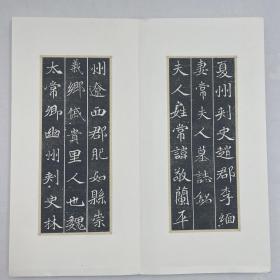 夏州刾史趙郡李緬
妻常夫人墓誌銘
夫人姓常諱敬蘭平
州遼西郡肥如縣崇
義鄉𠊱貴里人也魏
太常卿幽州刾史林